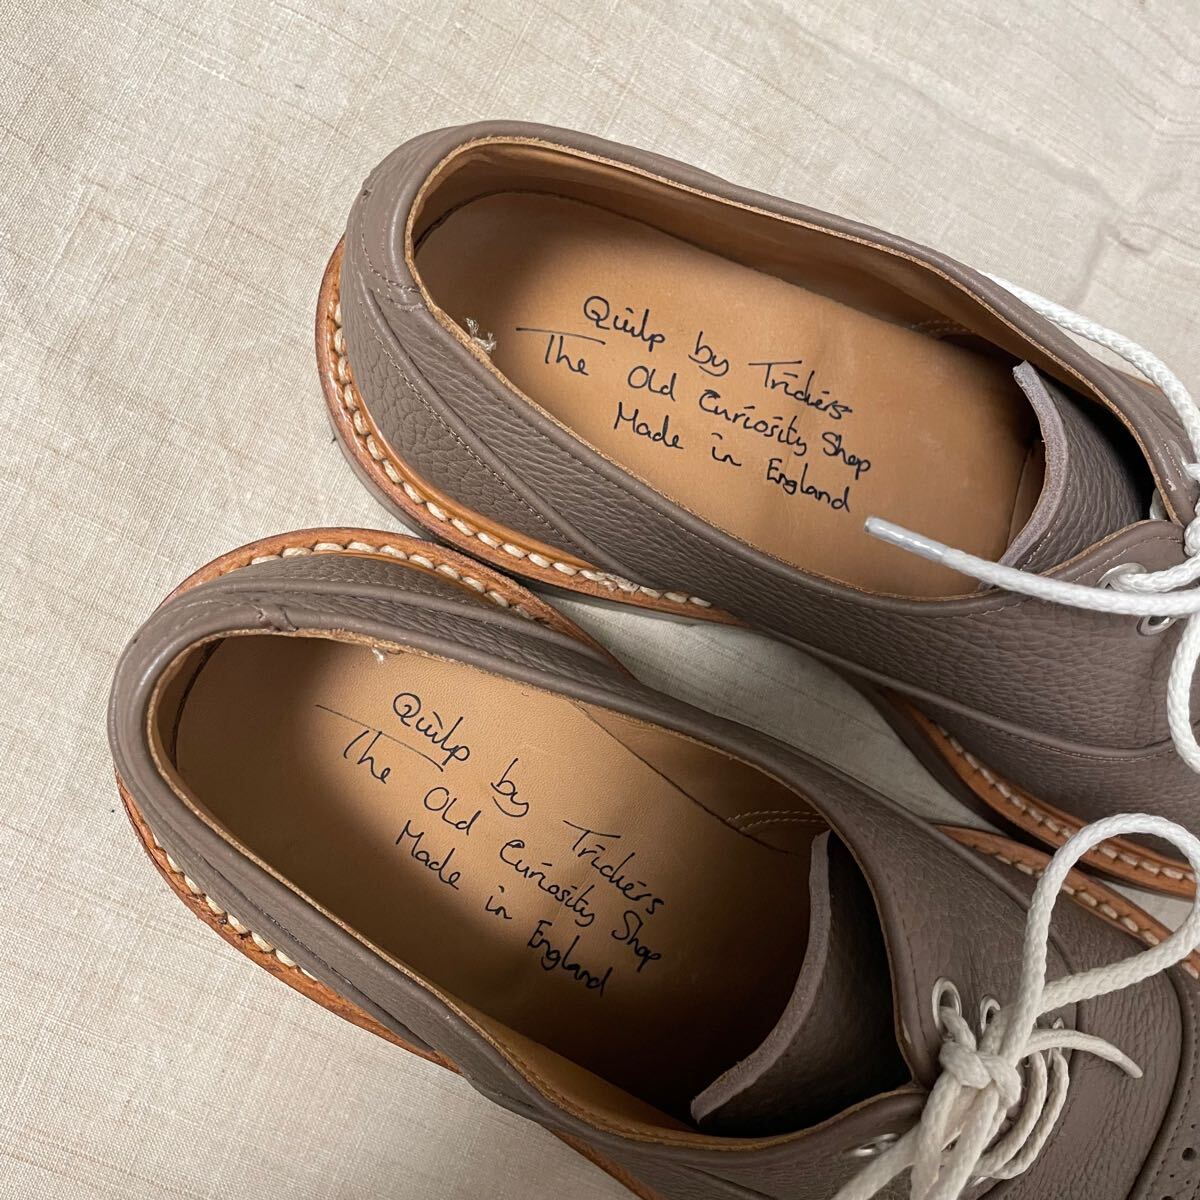 Quilp by Trickers
The Old Curiosity Shop
Made in England
Quilp by Trickers
The Old Curiosity Shop
Made in England